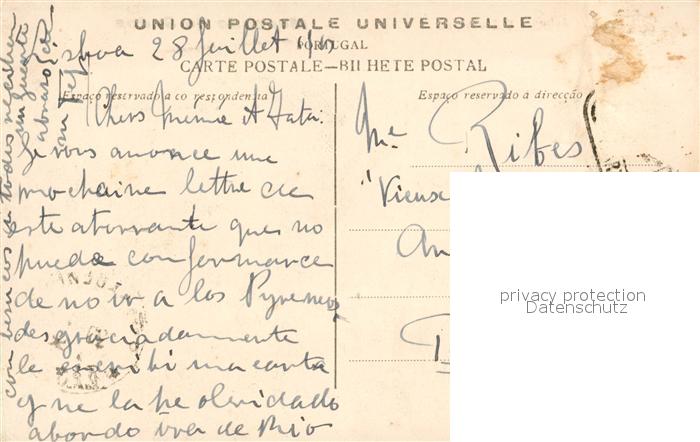 UNION POSTALE UNIVERSELLE
PORTUGAL
CARTE POSTALE—BILHETE POSTAL
Espaço reservado a correspondencia
Espaço reservado á direcção
Lisboa 28 Juillet
Chers Meme et Tata:
Je vous anonce une
prochaine lettre car
este atorrante ques no
puede conformarce
de no ir a los Pyreneos
desgraciadamente
le escribi una carta
y me la he olvidado
abordo
Me Ribes
Vieux
An
con besicos a todos reciban
un fuerte
abrazo de
privacy protection
Datenschutz